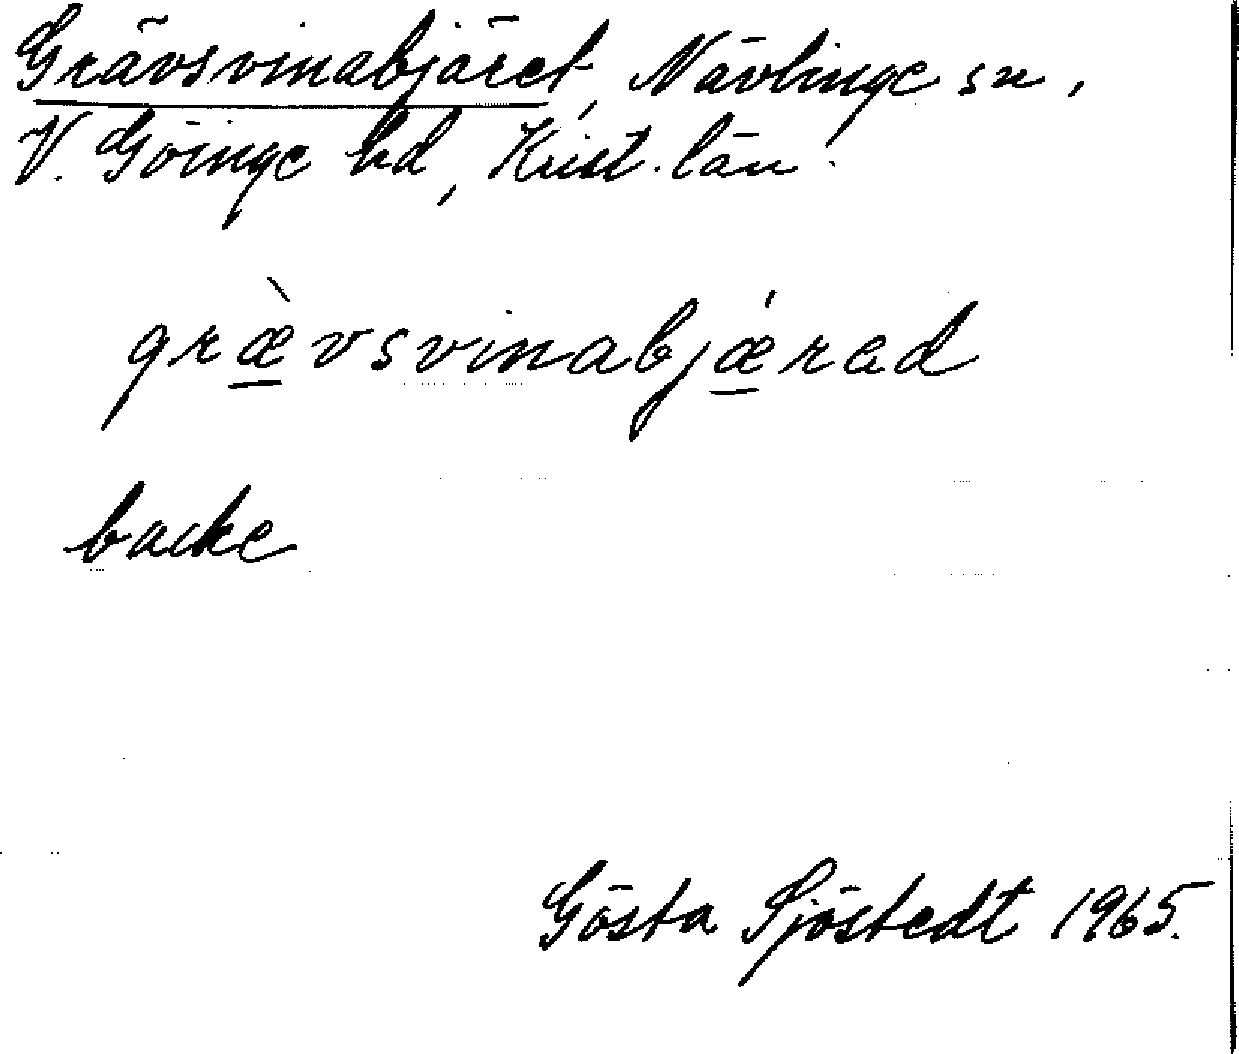 Grävsvinabjäret, Nävlinge sn,
V. Göinge hd, Krist. län.
græ̱̀vsvinabjǽ̱rad
backe
Gösta Sjöstedt 1965.